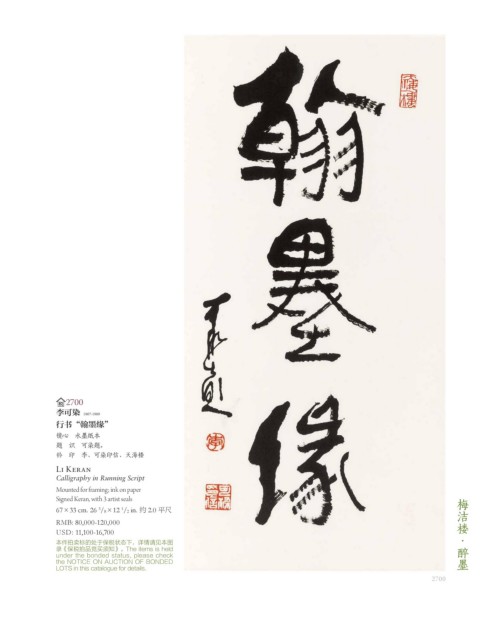 翰墨缘
可染題
2700
李可染 1907-1989
行书“翰墨缘”
镜心 水墨纸本
题 识 可染题。
钤 印 李、可染印信、天海楼
LI KERAN
Calligraphy in Running Script
Mounted for framing; ink on paper
Signed Keran, with 3 artist seals
67×33 cm. 26 3/8×12 1/2 in. 约 2.0 平尺
RMB: 80,000-120,000
USD: 11,100-16,700
本件拍卖标的处于保税状态下，详情请见本图
录《保税拍品竞买须知》。The items is held
under the bonded status, please check
the NOTICE ON AUCTION OF BONDED
LOTS in this catalogue for details.
梅洁楼·醉墨
2700